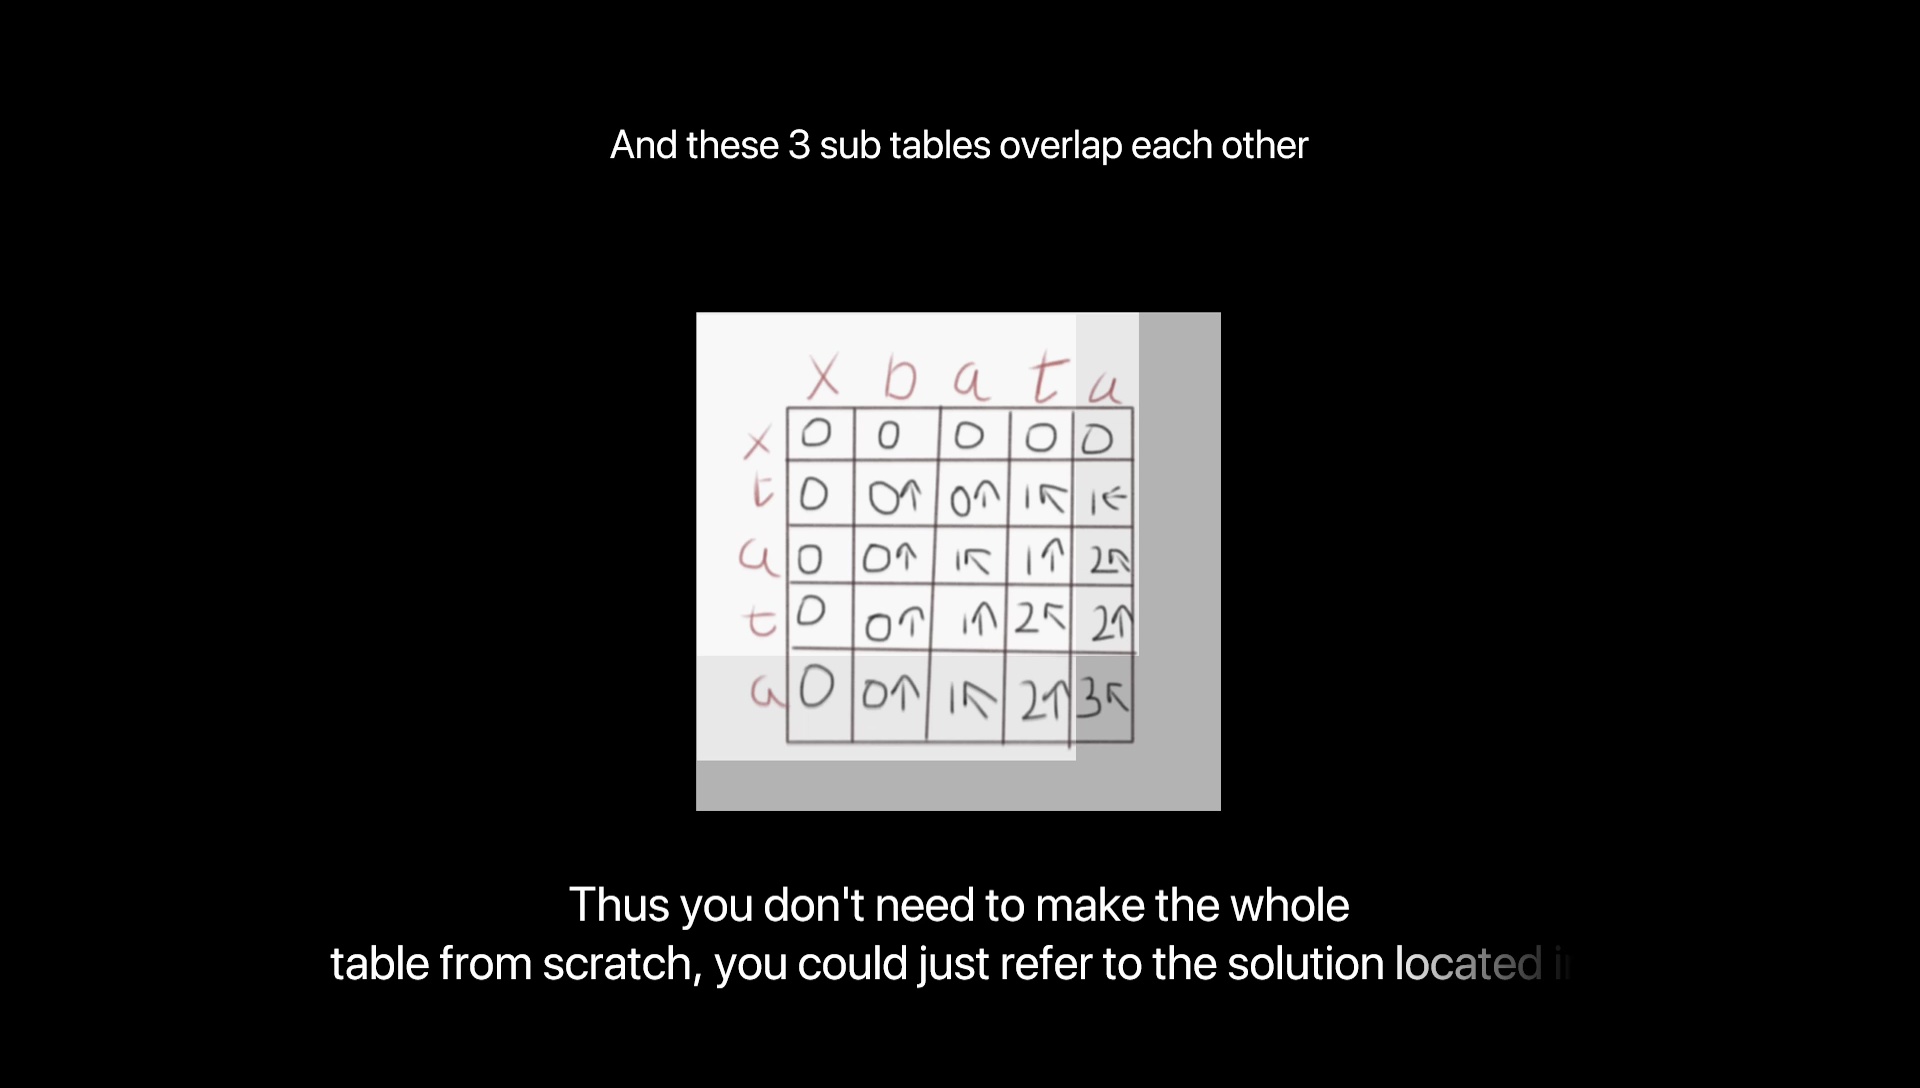 And these 3 sub tables overlap each other
x b a t a
x 0 0 0 0 0
t 0 0↑ 0↑ 1↖ 1←
a 0 0↑ 1↖ 1↑ 2↖
t 0 0↑ 1↑ 2↖ 2↑
a 0 0↑ 1↖ 2↑ 3↖
Thus you don't need to make the whole
table from scratch, you could just refer to the solution located in